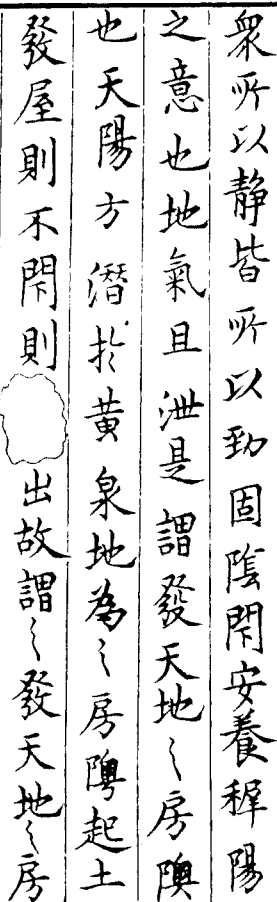 衆所以静皆所以勁固陰閇安養稺陽
之意也地氣且泄是謂發天地〻房隩
也天陽方潛扵黄泉地為〻房隩起土
發屋則不閇則出故謂〻發天地〻房